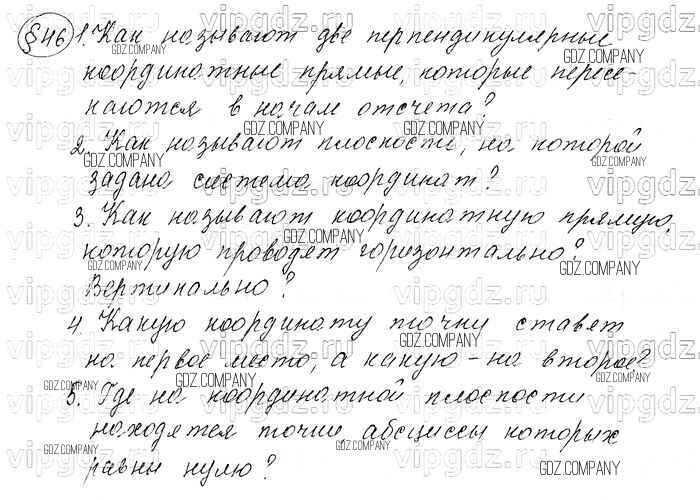 §46 1. Как называют две перпендикулярные
координатные прямые, которые пересе-
каются в начале отсчета?
2. Как называют плоскость, на которой
задана система координат?
3. Как называют координатную прямую,
которую проводят горизонтально?
Вертикально?
4. Какую координату точки ставят
на первое место, а какую - на второе?
5. Где на координатной плоскости
находятся точки, абсциссы которых
равны нулю?